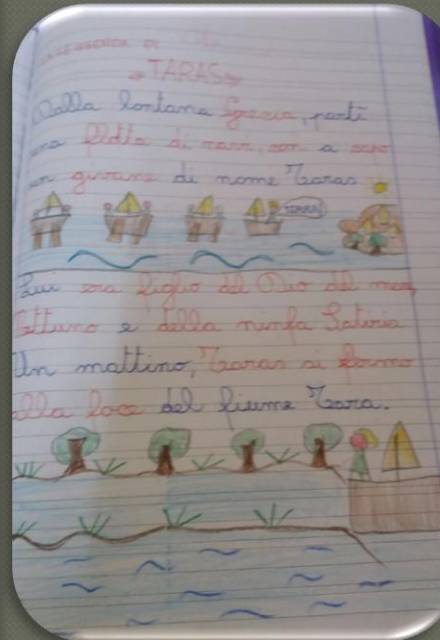 LA LEGGENDA DI
TARAS
Dalla lontana Grecia, partì
una flotta di navi, con a capo
un giovane di nome Taras
TERRA
Lui era figlio del Dio del mare
Nettuno e della ninfa Satiria
Un mattino, Taras si fermò
alla foce del fiume Tara.